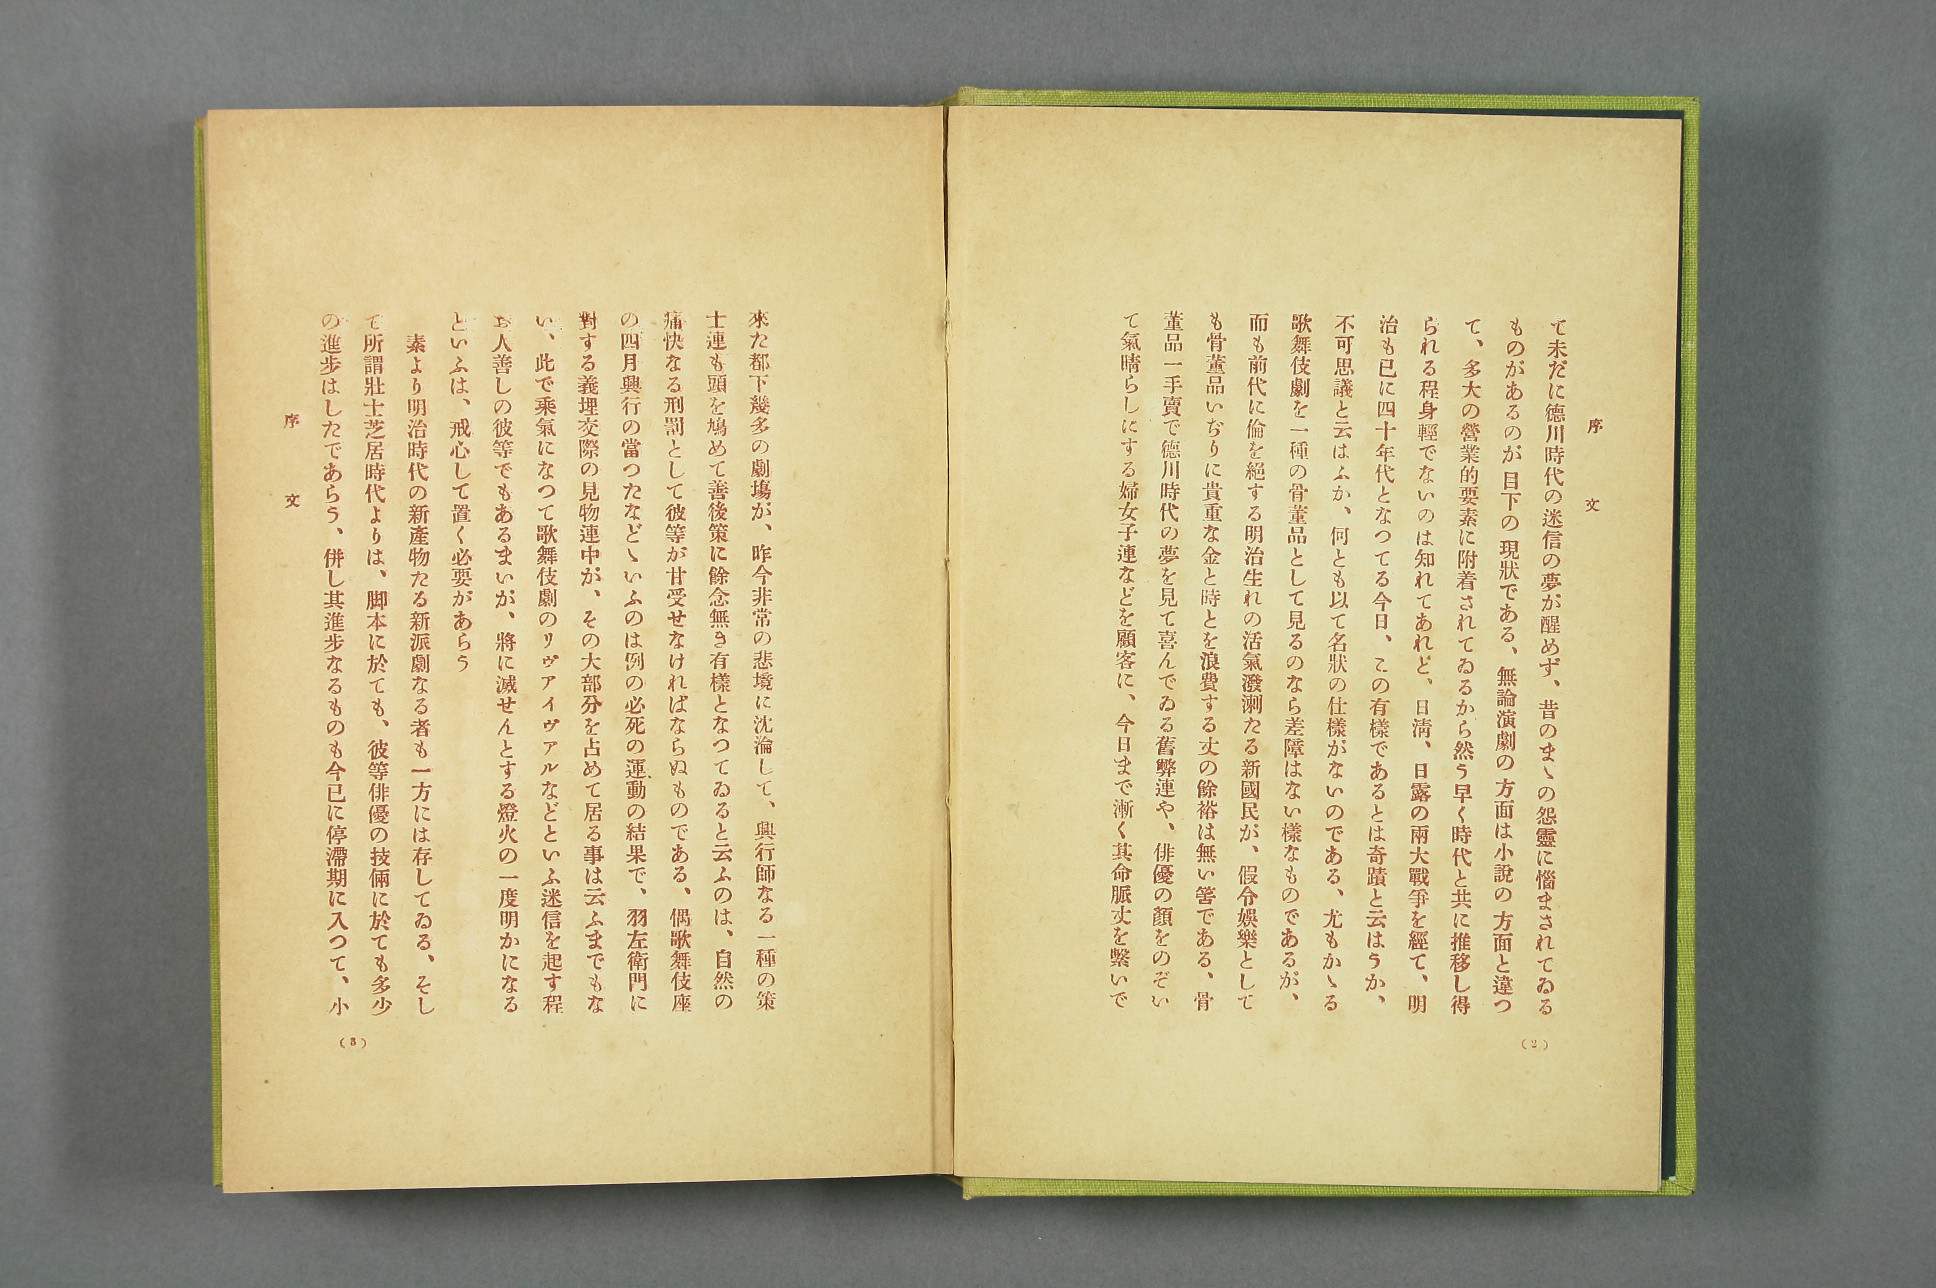 序文
て未だに德川時代の迷信の夢が醒めず、昔のまゝの怨靈に惱まされてゐる
ものがあるのが目下の現狀である、無論演劇の方面は小說の方面と違つ
て、多大の營業的要素に附着されてゐるから然う早く時代と共に推移し得
られる程身輕でないのは知れてあれど、日淸、日露の兩大戰爭を經て、明
治も已に四十年代となつてる今日、この有樣であるとは奇蹟と云はうか、
不可思議と云はふか、何とも以て名狀の仕樣がないのである、尤もかゝる
歌舞伎劇を一種の骨董品として見るのなら差障はない樣なものであるが、
而も前代に倫を絕する明治生れの活氣潑溂たる新國民が、假令娛樂として
も骨董品いぢりに貴重な金と時とを浪費する丈の餘裕は無い筈である、骨
董品一手賣で德川時代の夢を見て喜んでゐる舊弊連や、俳優の顏をのぞい
て氣晴らしにする婦女子連などを顧客に、今日まで漸く其命脈丈を繫いで
(2)
來た都下幾多の劇場が、昨今非常の悲境に沈淪して、興行師なる一種の策
士連も頭を鳩めて善後策に餘念無き有樣となつてゐると云ふのは、自然の
痛快なる刑罰として彼等が甘受せなければならぬものである、偶歌舞伎座
の四月興行の當つたなどゝいふのは例の必死の運動の結果で、羽左衞門に
對する義埋交際の見物連中が、その大部分を占めて居る事は云ふまでもな
い、此で乘氣になつて歌舞伎劇のリヴアイヴアルなどといふ迷信を起す程
お人善しの彼等でもあるまいが、將に滅せんとする燈火の一度明かになる
といふは、戒心して置く必要があらう
素より明治時代の新產物たる新派劇なる者も一方には存してゐる、そし
て所謂壯士芝居時代よりは、脚本に於ても、彼等俳優の技倆に於ても多少
の進步はしたであらう、併し其進步なるものも今已に停滯期に入つて、小
序文
(3)